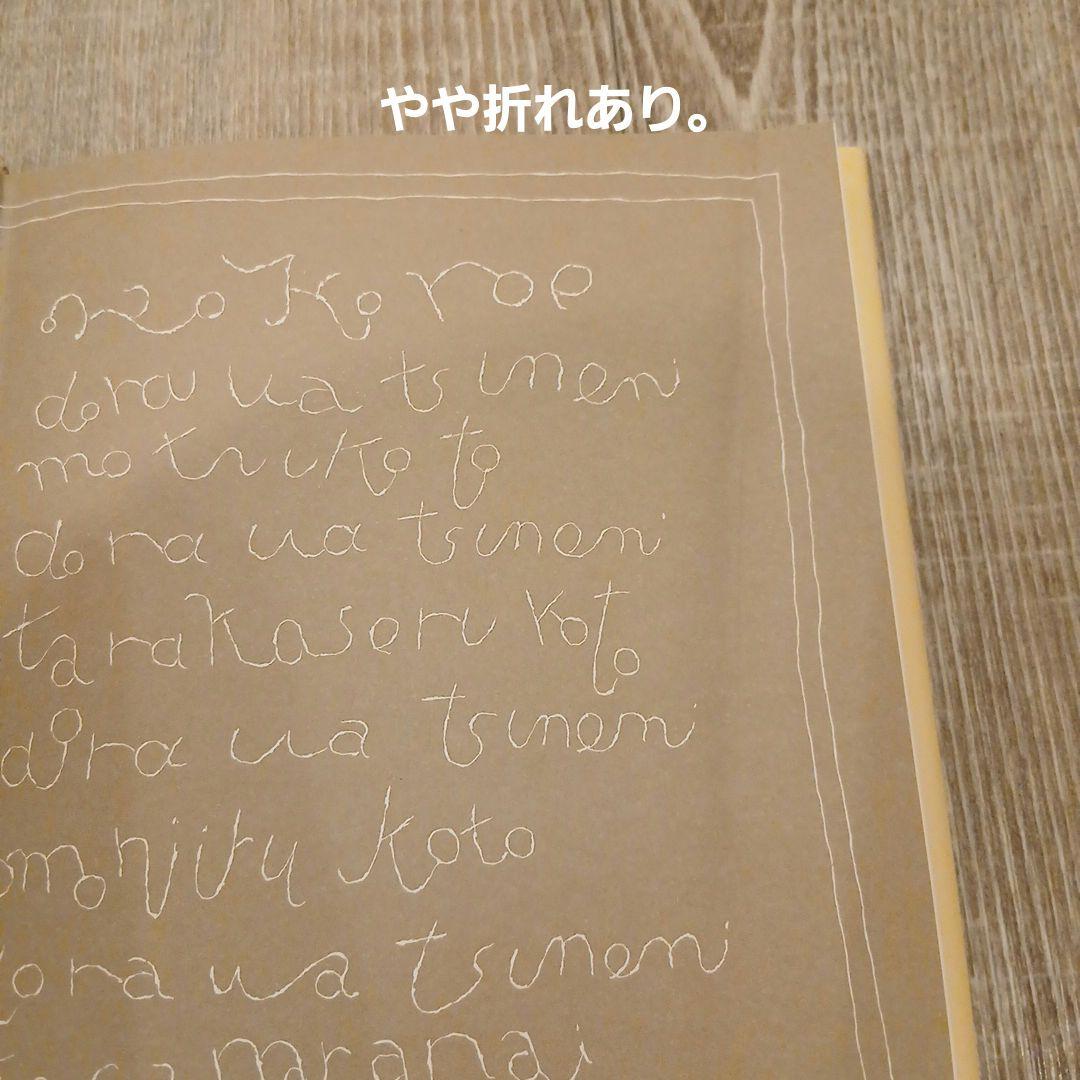 やや折れあり。
no Ko roe
dora ua tsuneni
motsu koto
dora ua tsuneni
tarakaseru koto
dora ua tsuneni
omonjiru koto
dora ua tsuneni